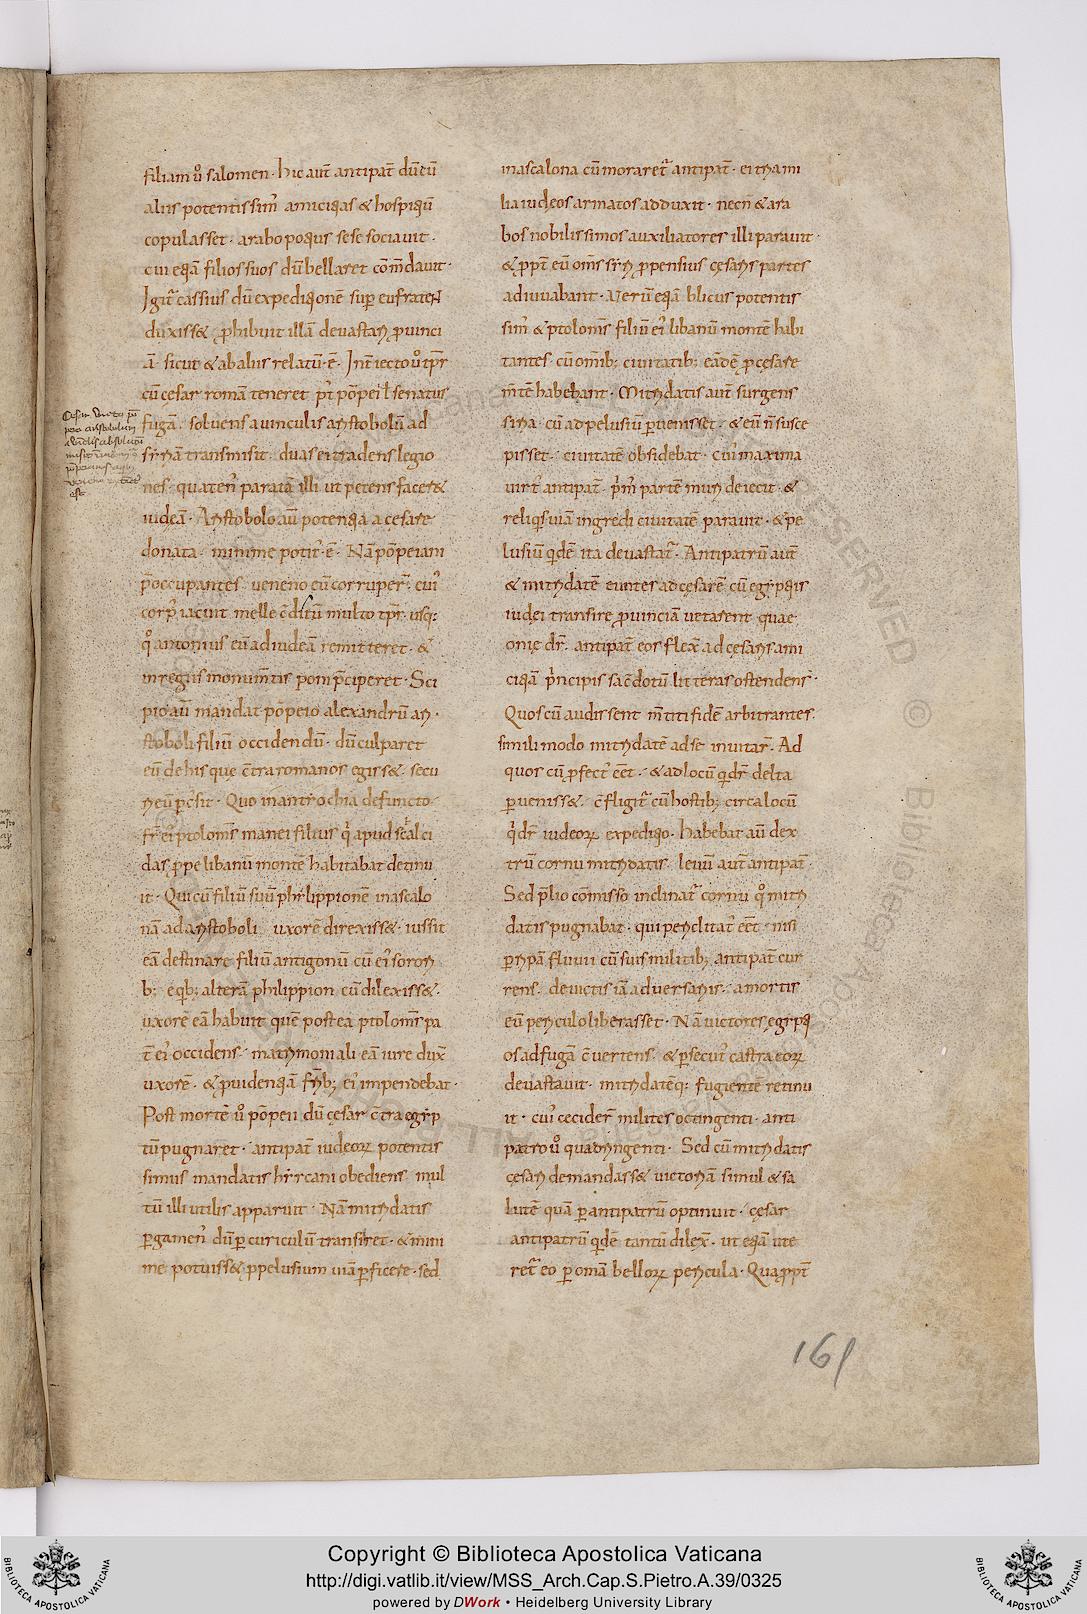 filiam u͛o salomen. hic aut̄ antipat̄ dū cū
aliis potentissim᷒ amicitias & hospitiū
copulasset. arabo potius sese sociauit.
cui etiā filios suos dū bellaret cōm̄dauit.
Igit̄ cassius dū expeditionē sup eufraten
duxiss& ꝓhibuit illā deuastari ꝓuinci
ā. sicut & ab aliis relatū ē. Int̄iecto u͛o tp̄r
cū cesar romā teneret p᷒t pōpei ł senatus
fugā. soluens a uinculis aristobolū ad
siriā transmisit. duas ei tradens legio
nes. quaten᷒ paratā illi ut petens facer&
iudeā. Aristobolo aū potentia a cęsare
donata. minime potit᷒ ē. Nā pōpeiani
p̄occupantes. ueneno eū corruper̄. cui᷒
corp᷒ iacuit melle c̄ditū multo tp̄r. usq;
q͛o antonius eū ad iudeā remitteret. &
in regiis monum̄tis poni p̄ciperet. Sci
pio aū mandat pōpeio alexandrū ari
stoboli filiū occidendū. dū culparet
eū de his que c̄tra romanos egiss&. secu
ri eū pc̄sit. Quo in antiochia defuncto
fr̄ ei᷒ ptolom᷒s manei filius q͛i apud scalci
das ꝓpe libanū montē habitabat detinu
it. Qui cū filiū suū philippionē in ascalo
nā ad aristoboli uxorē direxiss&. iussit
eā destinare filiū antigonū cū ei᷒ sorori
b;. e qb; alterā philippion cū dilexiss&.
uxorē eā habuit quē postea ptolom᷒s pa
t̄ ei᷒ occidens. matrimoniali eā iure dux̄
uxorē. & ꝓuidentiā fr̄ib; ei᷒ impendebat.
Post mortē u͛o pōpeii dū cęsar c̄tra egip
tū pugnaret. antipat̄ iudeorꝝ potentis
simus mandatis hircani obediens mul
tū illi utilis apparuit. Nā mitridatis
ꝑgamen᷒ dū ꝑ curiculū transiret. & mini
me potuiss& ꝓ pelusium uiā ꝑficere. sed
in ascalona cū moraret̄ antipat̄. ei tria mi
lia iudęos armatos adduxit. necn̄ & ara
bos nobilissimos auxiliatores illi parauit.
& ꝓpt̄ eū om̄s siri ꝓpensius cęsaris partes
adiuuabant. Uerū etiā blicus potentis
sim᷒ & ptolom᷒s filiū ei᷒ libanū montē habi
tantes. cū om̄ib; ciuitatib; eādē ꝓ cęsare
m̄tē habebant. Mitridatis aut̄ surgens
siria. cū ad pelusiū ꝑuenisset. & eū n̄ susce
pisset. ciuitatē obsidebat. cui᷒ maxima
uirt᷒ antipat̄. p᷒m᷒ partē muri deiecit. &
reliqs uiam ingredi ciuitatē parauit. & pe
lusiū qdē ita deuastat᷒. Antipatrū aut̄
& mitridatē euntes ad cęsarē cū egiptiis
iudei transire ꝓuinciā uetarent quae
onię dr̄. antipat̄ eos flex̄ ad cęsaris ami
citiā p᷒ncipis sac̄dotū litteras ostendens.
Quos cū audissent m̄titi fidē arbitrantes.
simili modo mitridatē ad se inuitar̄. Ad
quos cū ꝓfect᷒ eēt. & ad locū q dr̄ delta
ꝑueniss&. c̄fligit̄ cū hostib; circa locū
q͛ dr̄ iudeorꝝ expeditio. habebat aū dex
trū cornu mitridatis. leuū aut̄ antipat̄
Sed p̄lio cōmisso inclinat᷒ cornu q͛o mitri
datis pugnabat. qui periclitat᷒ eēt nisi
ꝑ ripā fluuii cū suis militib; antipat̄ cur
rens. deuictis iā aduersariis. a mortis
eū periculo liberasset. Nā uictores egipti
os ad fugā c̄uertens. & ꝑsecut᷒ castra eorꝝ
deuastauit. mitridatēq; fugientē retinu
it. cui᷒ cecider̄ milites octingenti. anti
patro u͛o quadringenti. Sed cū mitridatis
cęsari demandass& uictoriā simul & sa
lutē quā ꝑ antipatrū optinuit. cęsar
antipatrū qdē tantū dilex̄. ut etiā ute
ret̄ eo ꝑ omīa bellorꝝ pericula. Quaꝓpt̄
161
Copyright © Biblioteca Apostolica Vaticana
http://digi.vatlib.it/view/MSS_Arch.Cap.S.Pietro.A.39/0325
powered by DWork • Heidelberg University Library
BIBLIOTECA APOSTOLICA VATICANA
BIBLIOTECA APOSTOLICA VATICANA